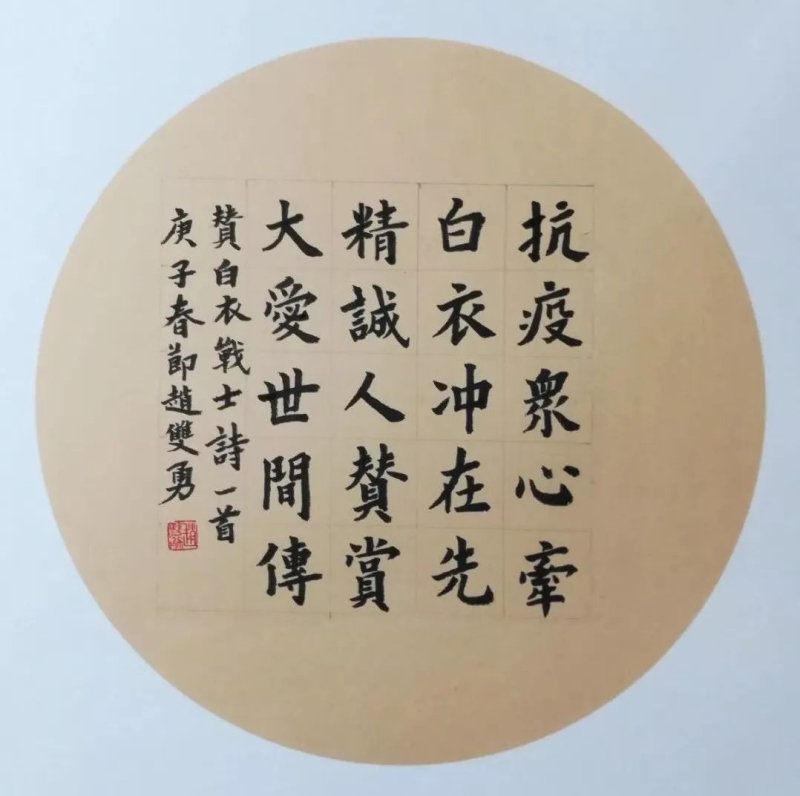 抗疫衆心牽
白衣冲在先
精誠人賛賞
大愛世間傳
賛白衣戰士詩一首
庚子春節趙雙勇